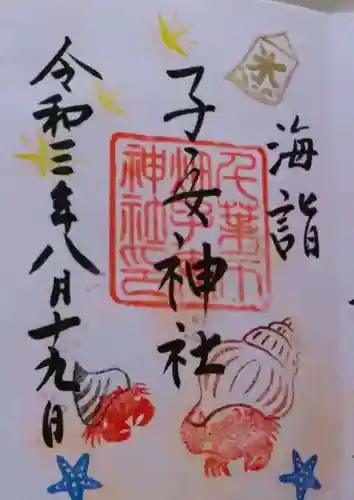 海詣
子安神社
令和三年八月十九日
千葉市
畑子安
神社印